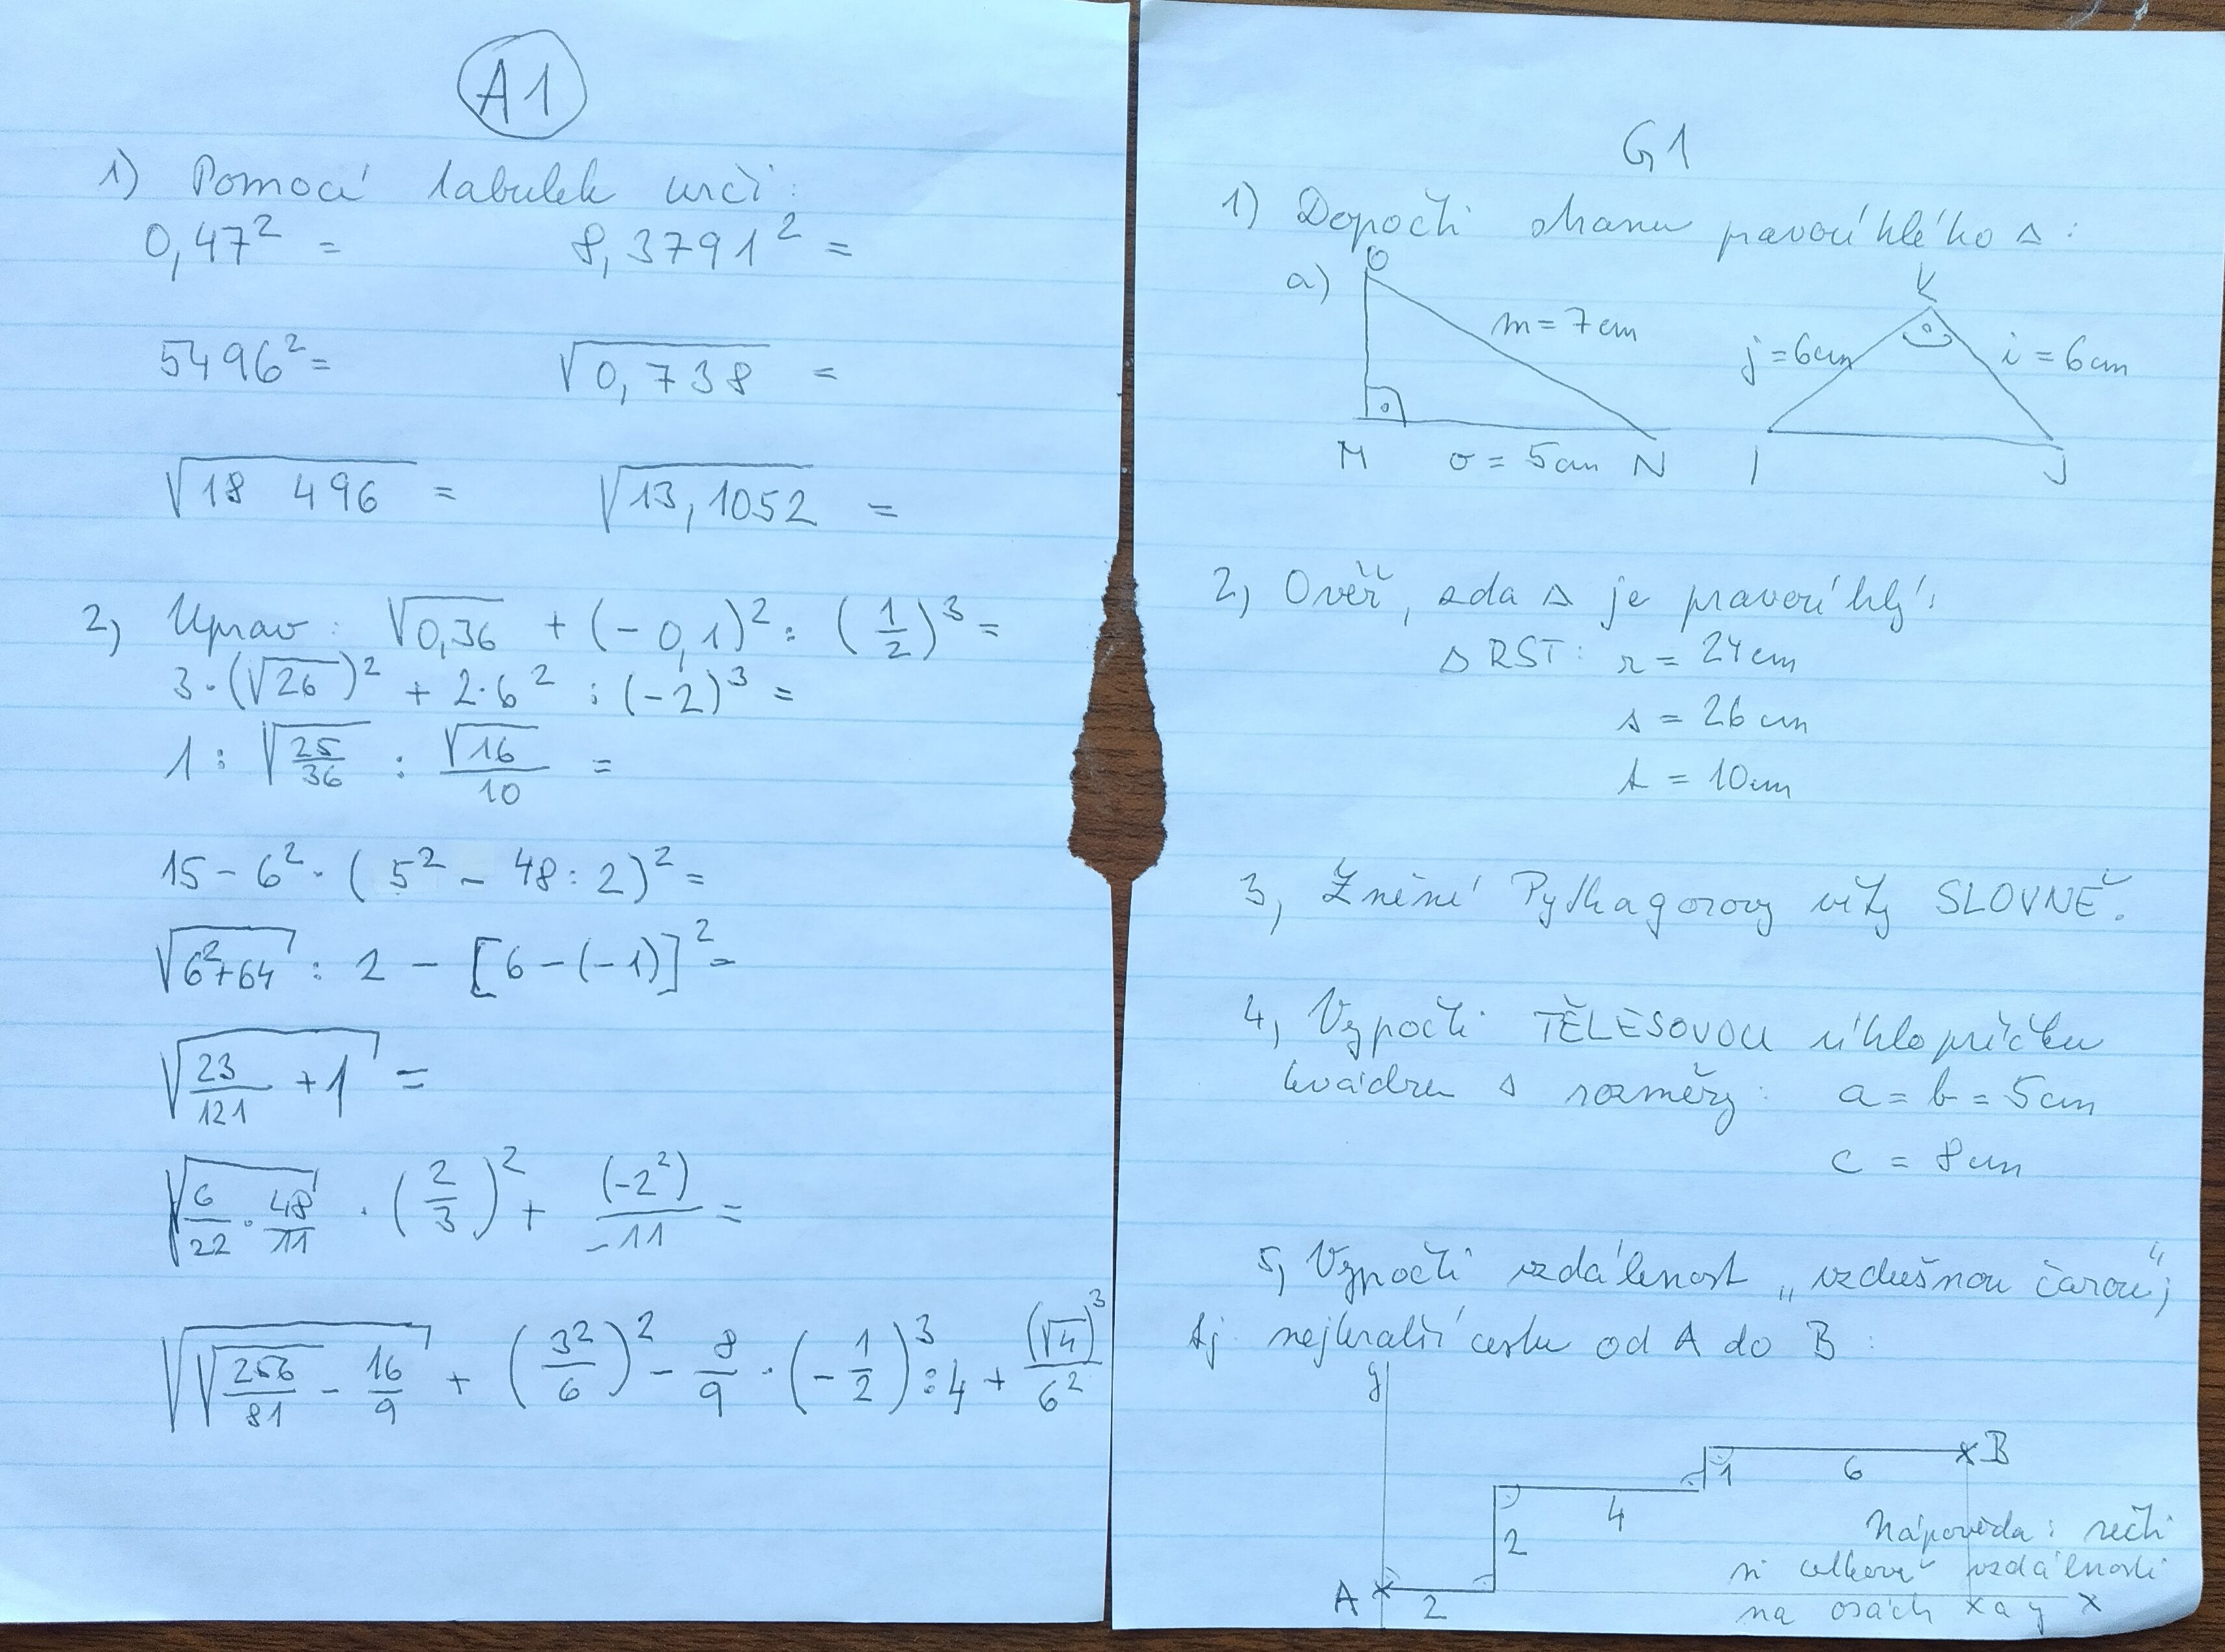 A1
1) Pomocí tabulek urči:
0,47² = 8,3791² =
5496² = √0,738 =
√18 496 = √13,1052 =
2) Uprav: √0,36 + (-0,1)² : (1/2)³ =
3·(√26)² + 2·6² : (-2)³ =
1 : √25/36 : √16/10 =
15 - 6² · (5² - 48 : 2)² =
√6²+64 : 2 - [6-(-1)]² =
√23/121 + 1 =
√6/22 · 48/11 · (2/3)² + (-2²)/-11 =
√√256/81 - 16/9 + (3²/6)² - 8/9 · (-1/2)³ : 4 + (√4)³/6²
G1
1) Dopočti stranu pravoúhlého △:
a) O m = 7cm K j = 6cm i = 6cm
M o = 5cm N I J
2) Ověř, zda △ je pravoúhlý:
△ RST: r = 24cm
s = 26 cm
t = 10cm
3, Znění Pythagorovy věty SLOVNĚ.
4, Vypočti TĚLESOVOU úhlopříčku
kvádru s rozměry: a = b = 5cm
c = 8cm
5, Vypočti vzdálenost „vzdušnou čarou",
tj nejkratší cestu od A do B:
y
B
1 6
4
2
Nápověda: sečti
si celkové vzdálenosti
A 2 na osách x a y x